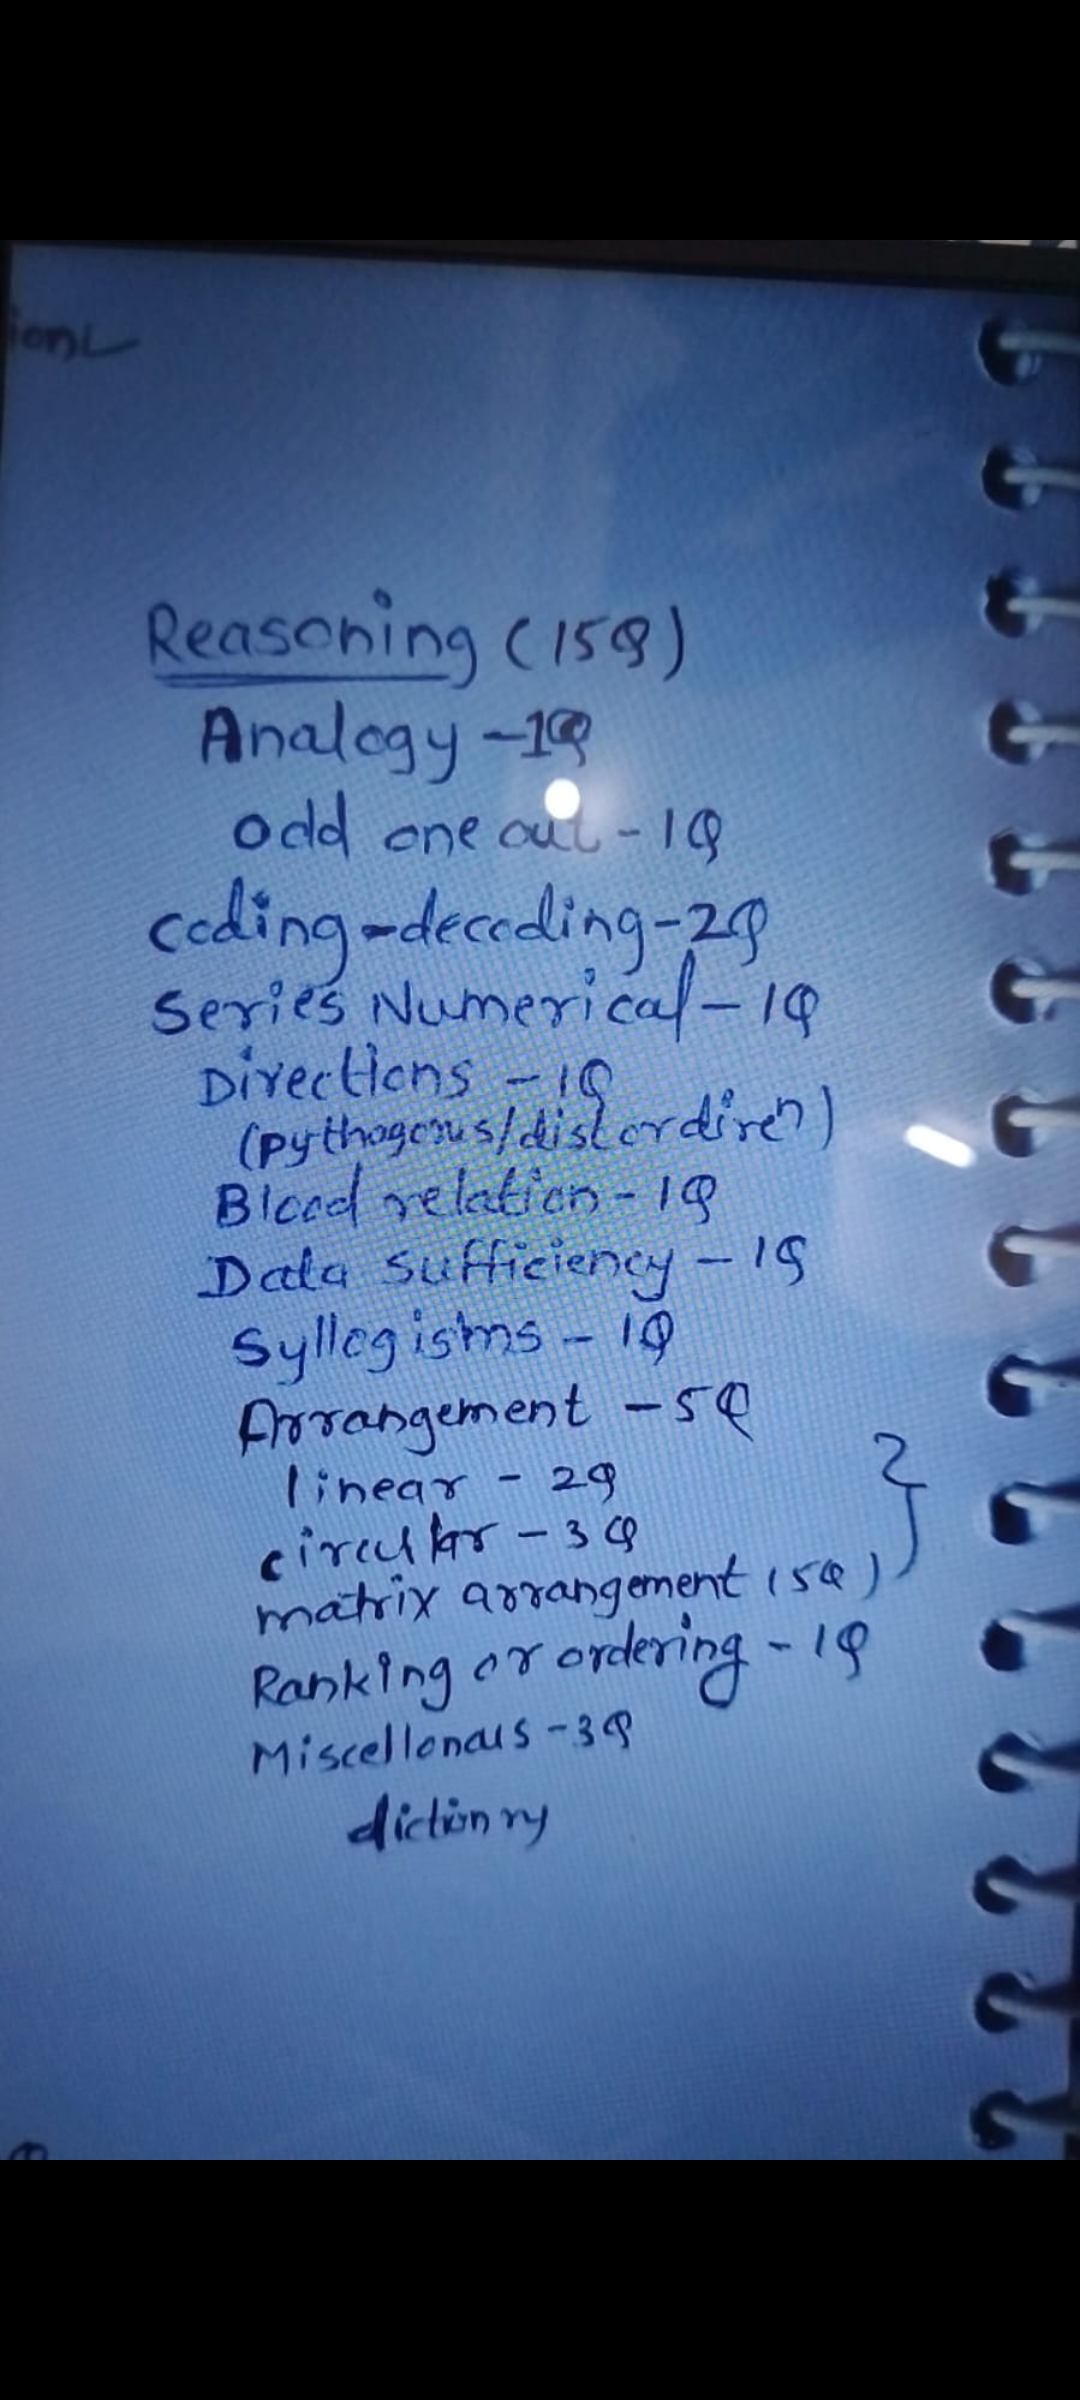 Reasoning (15Q)
Analogy - 1Q
odd one out - 1Q
coding-decoding - 2Q
Series Numerical - 1Q
Directions - 1Q
(pythogorus/dist or diren)
Blood relation - 1Q
Data sufficiency - 1Q
Syllogisms - 1Q
Arrangement - 5Q
linear - 2Q
circular - 3Q
matrix arrangement (5Q)
Ranking or ordering - 1Q
Miscellonous - 3Q
dictionry